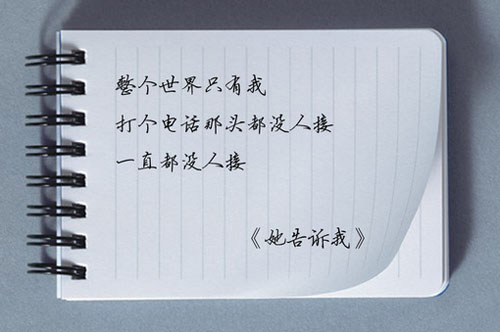 整个世界只有我
打个电话那头都没人接
一直都没人接
《她告诉我》